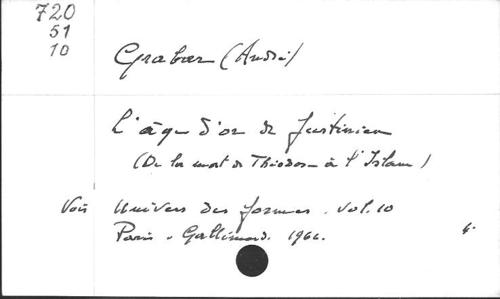 720
51
10
Grabar (André)
L'âge d'or de Justinien
(De la mort de Théodose à l'Islam)
Voir Univers des formes. Vol. 10
Paris. Gallimard. 1966.